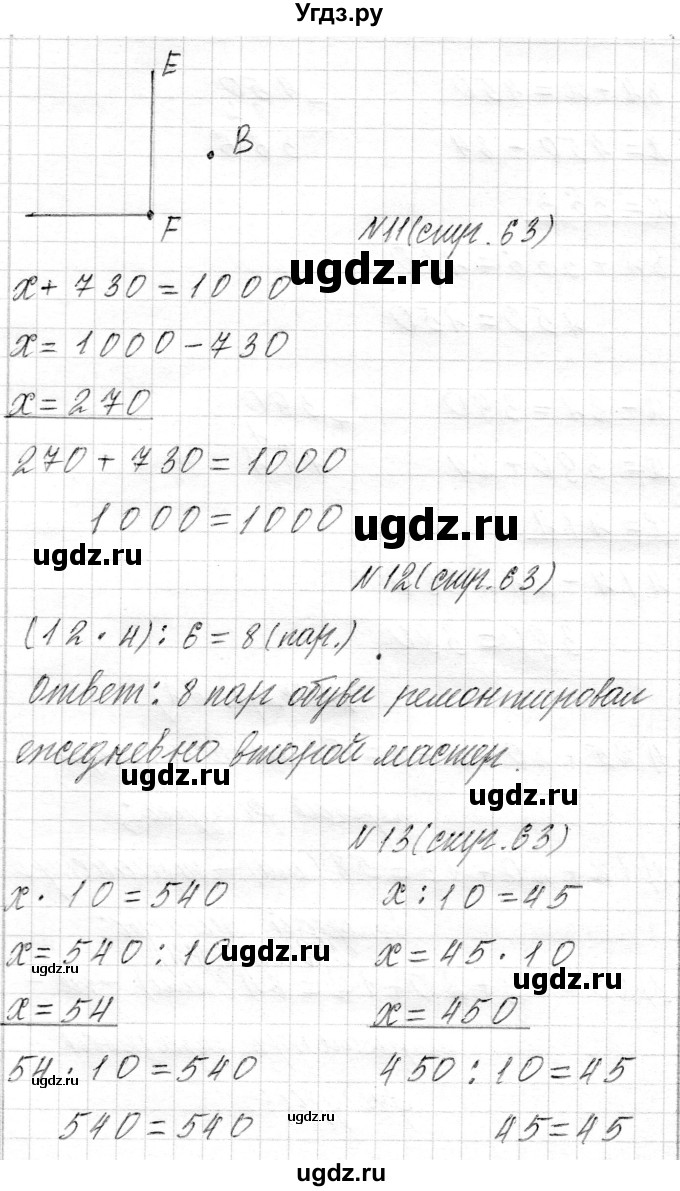 Угдз.ру
E
B
F
N11(стр. 63)
ugdz.ru
x + 730 = 1000
x = 1000 - 730
x = 270
270 + 730 = 1000
1000 = 1000
ugdz.ru
ugdz.ru
N12(стр. 63)
(12 · 4) : 6 = 8 (пар.)
Ответ: 8 пар обуви ремонтировал
ежедневно второй мастер.
ugdz.ru
ugdz.ru
N13(стр. 63)
x · 10 = 540
x = 540 : 10
ugdz.ru
ugdz.ru
x = 54
54 · 10 = 540
ugdz.ru
540 = 540
x : 10 = 45
x = 45 · 10
ugdz.ru
x = 450
450 : 10 = 45
45 = 45
ugdz.ru
ugdz.ru